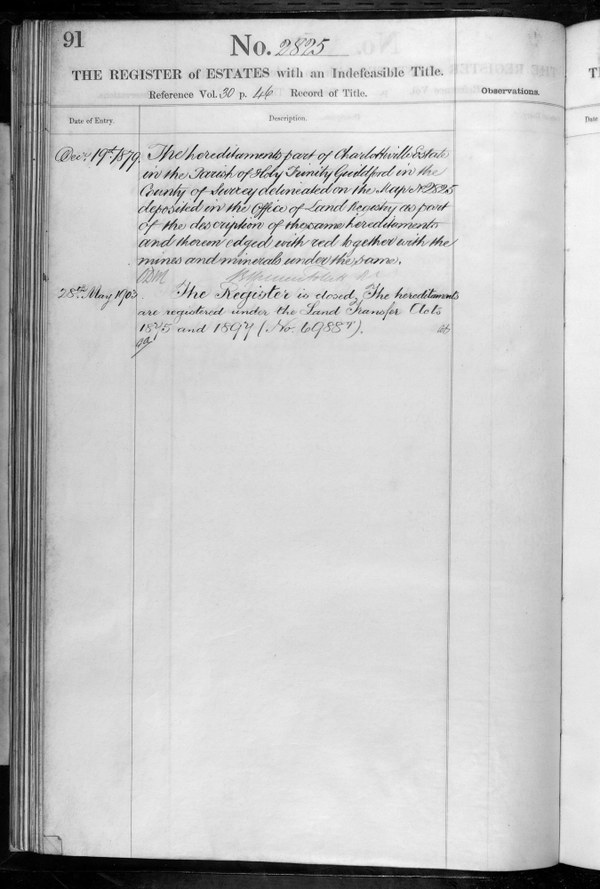 91
No. 2825
THE REGISTER of ESTATES with an Indefeasible Title.
Reference Vol. 30 p. 46 Record of Title.
Observations.
Date of Entry.
Description.
Decr. 19th 1879
The hereditaments part of Charlottville Estate
in the Parish of Holy Trinity Guildford in the
County of Surrey deliniated on the Map No 2825
deposited in the Office of Land Registry as part
of the description of the same hereditaments
and therein edged with red together with the
mines and minerals under the same.
28th May 1903
The Register is closed. The hereditaments
are registered under the Land Transfer Acts
1875 and 1897 (No. 69887).